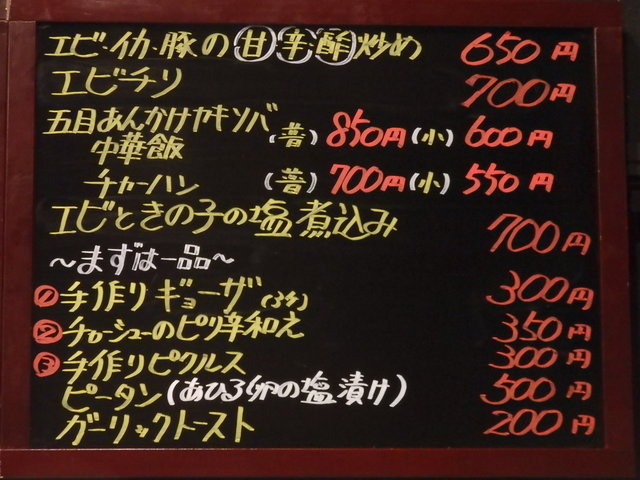 エビ・イカ・豚の甘・辛・酢炒め 650円
エビチリ 700円
五目あんかけヤキソバ
中華飯 (普) 850円 (小) 600円
チャーハン (普) 700円 (小) 550円
エビときの子の塩煮込み 700円
〜まずは一品〜
① 手作りギョーザ(3ケ) 300円
② チャーシューのピリ辛和え 350円
③ 手作りピクルス 300円
ピータン(あひる卵の塩漬け) 500円
ガーリックトースト 200円